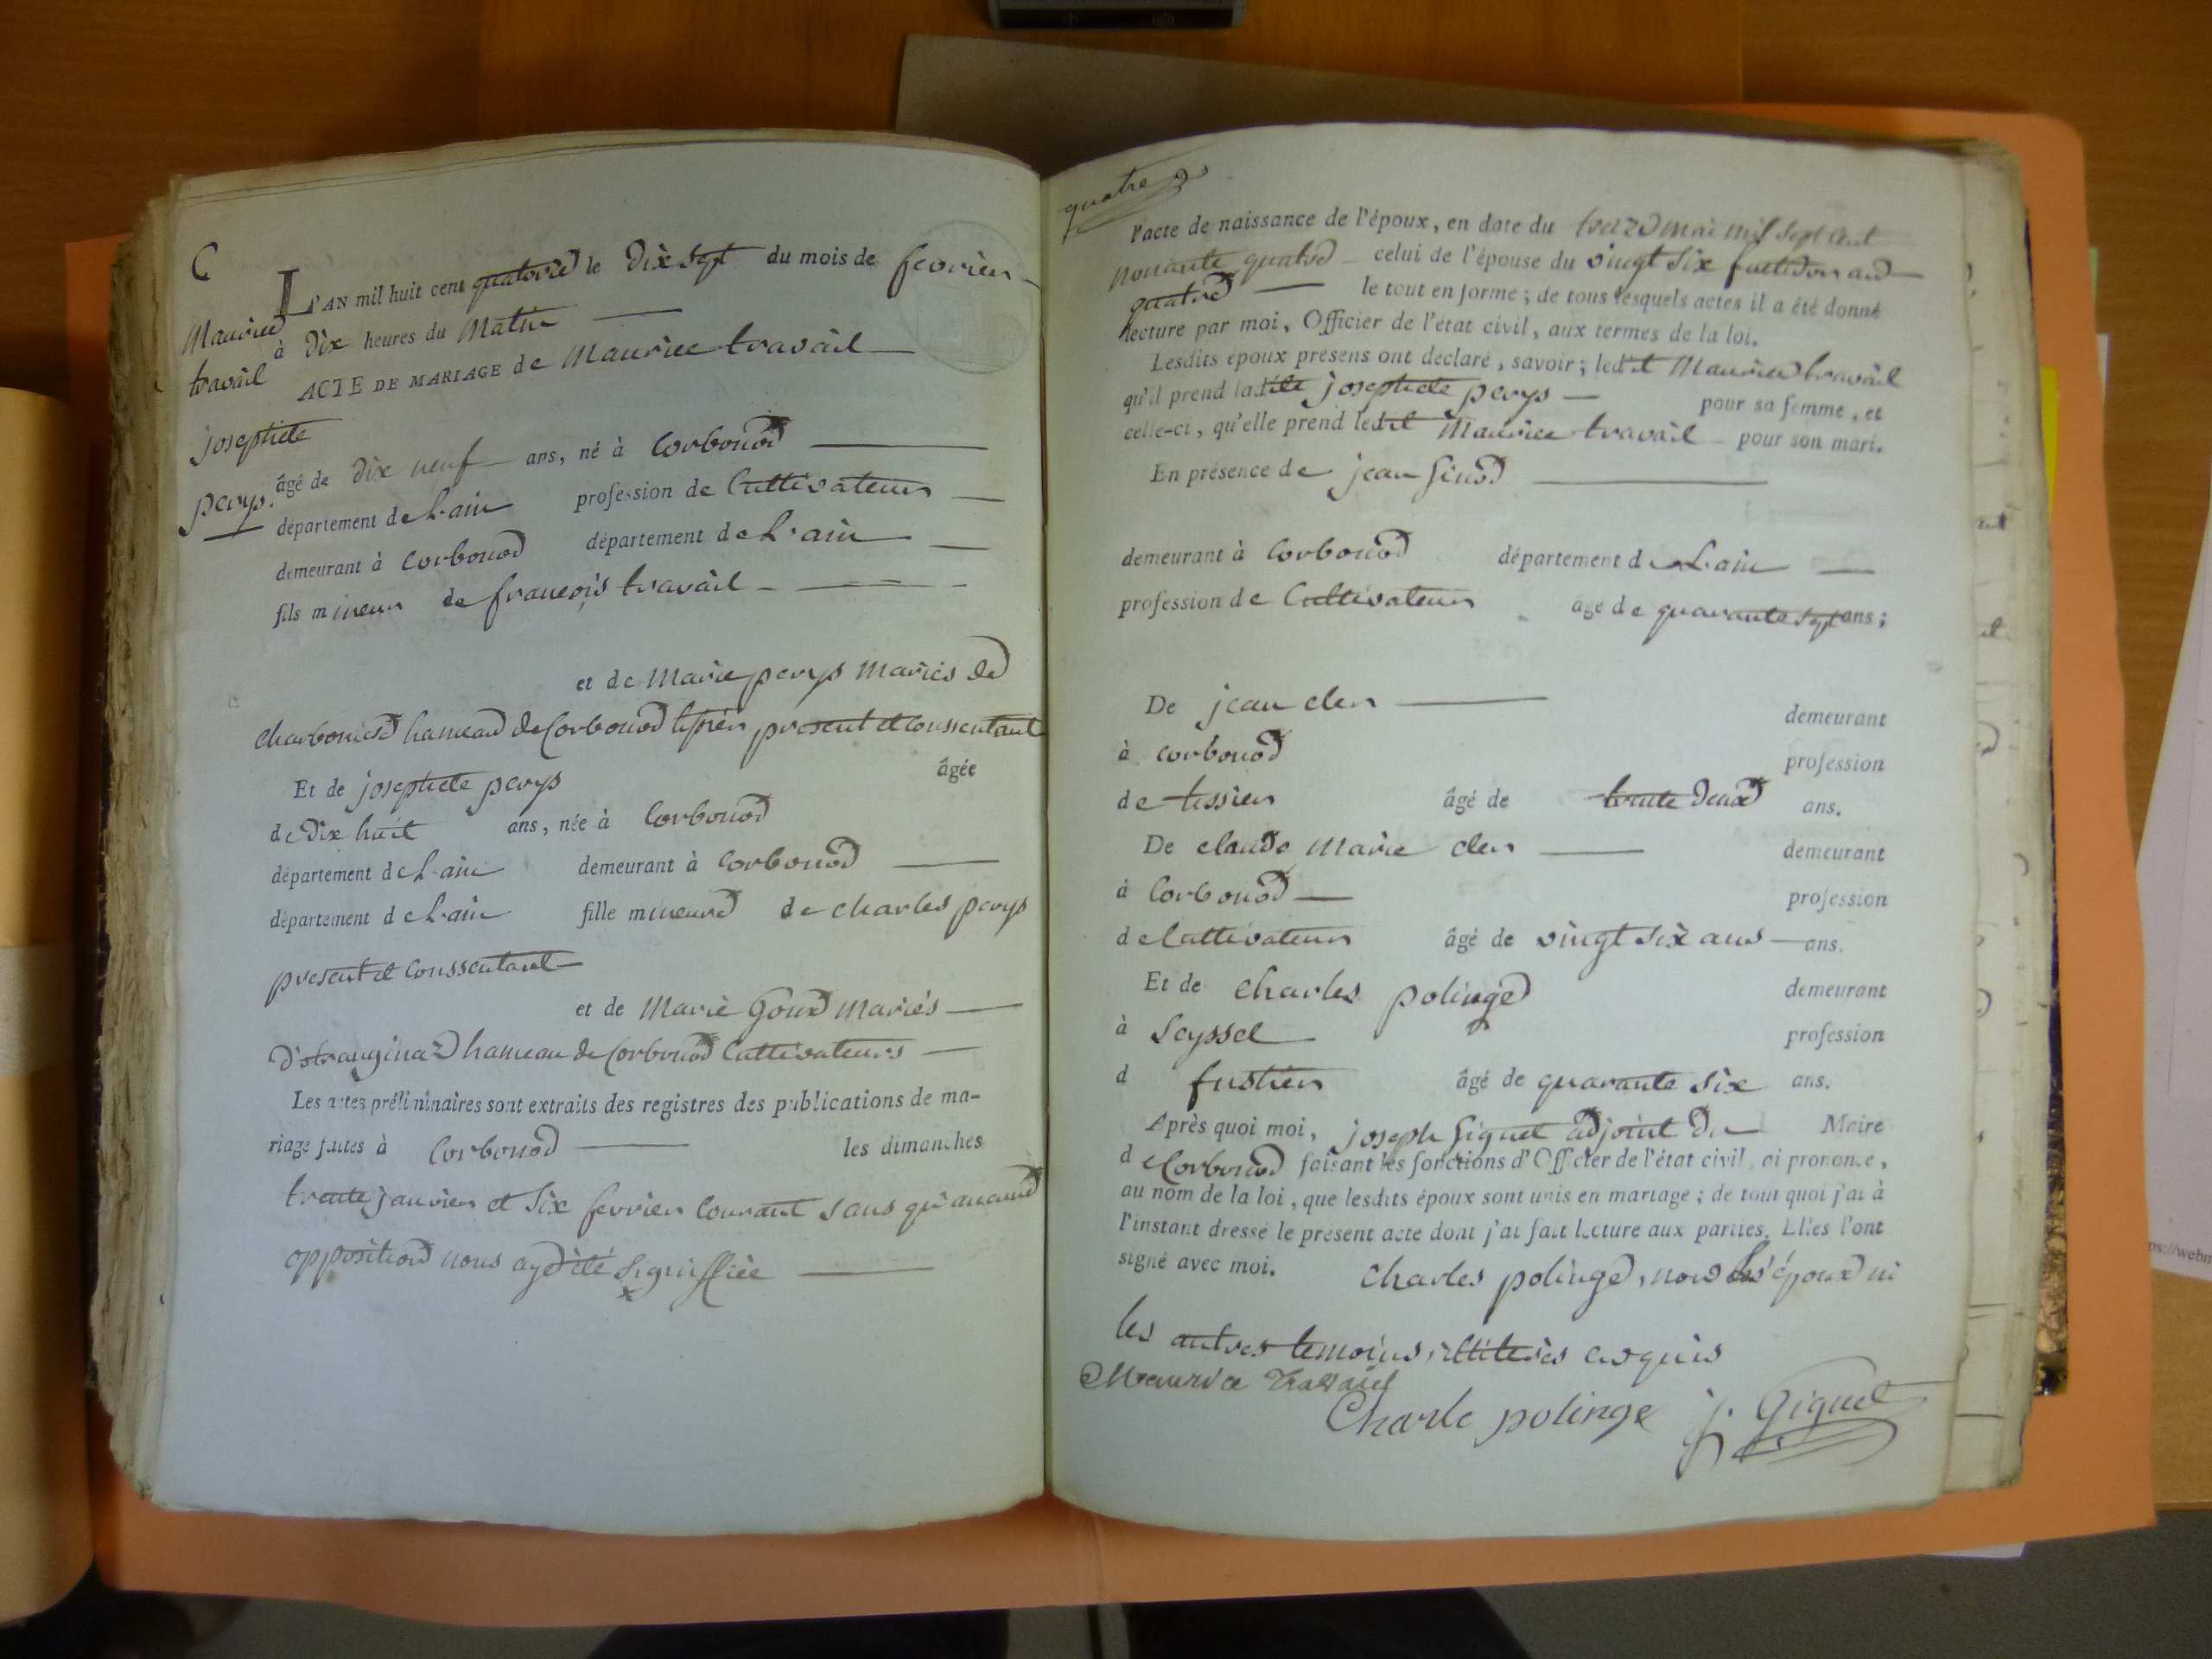 C
L'AN mil huit cent quatorze le Dix sept du mois de fevrier
Maurice travail
à Dix heures du Matin
ACTE DE MARIAGE de Maurice travail
josephte perys.
âgé de Dix neuf ans, né à Corbonod
département de L'ain profession de Cultivateur
demeurant à Corbonod département de L'ain
fils mineur de françois travail
et de Marie perys mariés de
charbonied hameau de Corbonod present et conssentant
Et de josephte perys âgée
de Dix huit ans, née à Corbonod
département de L'ain demeurant à Corbonod
département de L'ain fille mineure de charles perys
present et Conssentant
et de Marie Goux mariés
D'otranginaz hameau de Corbonod Cultivateurs
Les actes préliminaires sont extraits des registres des publications de ma-
riage faites à Corbonod les dimanches
trente janvier et Six fevrier Courant sans qu'aucune
opposition nous aye été Signiffiée
quatre
l'acte de naissance de l'époux, en date du treize mai mil sept cent
nonante quatre celui de l'épouse du vingt Six fructidor an
quatre le tout en forme; de tous lesquels actes il a été donné
lecture par moi, Officier de l'état civil, aux termes de la loi.
Lesdits époux présens ont déclaré, savoir; ledit Maurice travail
qu'il prend ladite josephte perys pour sa femme, et
celle-ci, qu'elle prend ledit Maurice travail pour son mari.
En présence de jean
demeurant à Corbonod département de L'ain
profession de Cultivateur âgé de quarante sept ans;
De jean cler demeurant
à corbonod profession
de tessier âgé de trente Deux ans.
De claude Marie cler demeurant
à Corbonod profession
de Cultivateur âgé de vingt six ans ans.
Et de charles polinge demeurant
à Seyssel profession
d fustier âgé de quarante six ans.
Après quoi moi, joseph Giguet adjoint du Maire
d Corbonod faisant les fonctions d'Officier de l'état civil, ai prononcé,
au nom de la loi, que lesdits époux sont unis en mariage; de tout quoi j'ai à
l'instant dressé le présent acte dont j'ai fait lecture aux parties. Elles l'ont
signé avec moi. charles polinge, non les époux ni
les autres temoins, illiterés enquis
Maurice Travail
Charle polinge J. Giguet